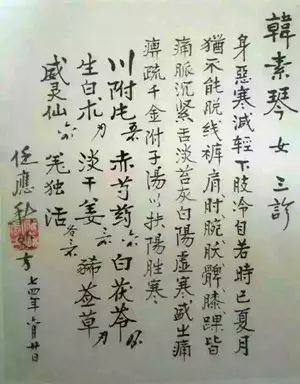 韓素琴 女 三診
身惡寒減輕下肢冷自若時已夏月
猶不能脱線褲肩肘腕胯髀膝踝皆
痛脈沉緊舌淡苔灰白陽虛寒盛出痛
痹疏千金附子湯以扶陽勝寒
川附片 赤芍药 白茯苓
生白术 淡干姜 豨薟草
威灵仙 羌独活
任應秋 方
七四年六月廿日